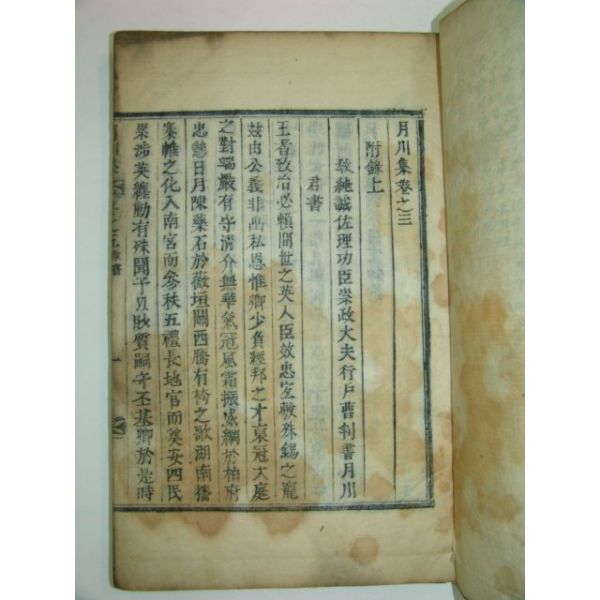 月川集卷之三
附錄上
敎純誠佐理功臣崇政大夫行戶曹判書月川
君書
王若曰致治必賴間世之英人臣效忠宜膺殊錫之寵
玆由公義非出私恩惟卿少負經邦之才衷冠大庭
之對端嚴有守淸介無華氣冠風霜振威綱於柏府
忠懸日月陳藥石於薇垣關西騰有袴之歌湖南播
褰帷之化入南宮而參秩五禮長地官而奠安四民
累涉英躔動有殊聞予以眇質嗣守丕基卿於是時